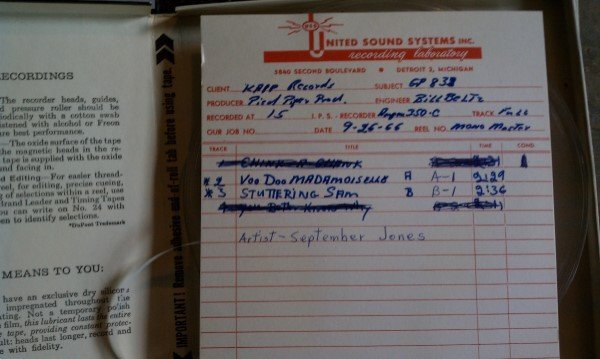 ECORDINGS
The recorder heads, guides,
d pressure roller should be
iodically with a cotton swab
istened with alcohol or Freon
ure best performance.
—The oxide surface of the tape
the magnetic heads in the re-
tape is supplied with the oxide
and facing in.
d Editing—For easier thread-
reel, for editing, precise cueing,
g of selections within a reel, use
and Leader and Timing Tapes
you can write on No. 24 with
pen to identify selections.
*DuPont Trademark
MEANS TO YOU:
have an exclusive dry silicone
impregnated throughout the
ting. Not a temporary polish
e film, this lubricant lasts the entire
e tape, providing constant protec-
ult: heads last longer, record and
e with fidelity.
IMPORTANT! Remove adhesive end-of-roll tab before using tape.
USS
UNITED SOUND SYSTEMS INC.
recording laboratory
5840 SECOND BOULEVARD DETROIT 2, MICHIGAN
CLIENT KAPP Records SUBJECT
PRODUCER Pied Piper Prod. ENGINEER Bill Beltz
RECORDED AT 15 I. P. S. - RECORDER Ampex 350-C TRACK Full
OUR JOB NO. DATE 9-26-66 REEL NO. MONO Master
TRACK TITLE TIME COND
*2 VOO DOO MADAMOISELLE A A-1 2:29
*3 STUTTERING SAM B B-1 2:36
Artist - September Jones